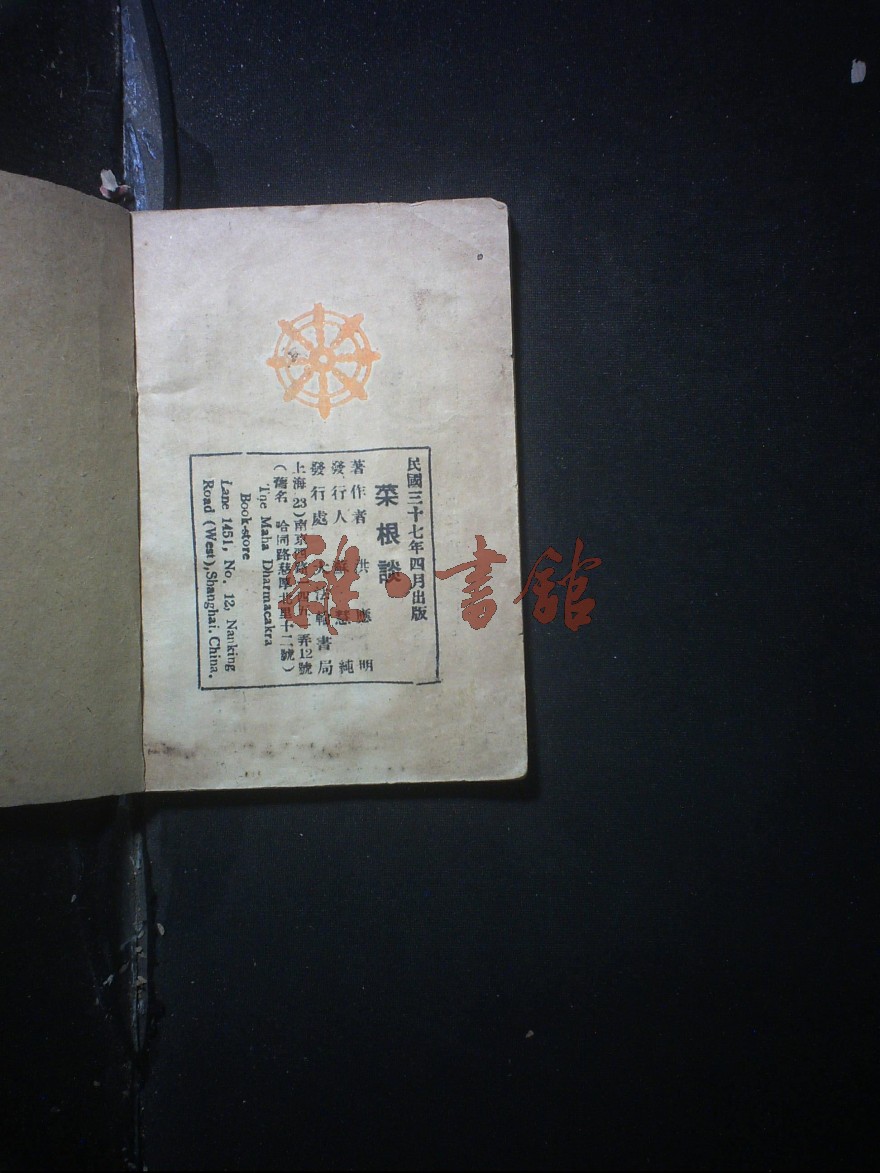 民國三十七年四月出版
菜根談
著作者 洪應明
發行人 蘇慧純
發行處 大法輪書局
上海23)南京西路 弄12號
(舊名 哈同路慈厚北里十二號)
The Maha Dharmacakra
Book-store
Lane 1451, No. 12, Nanking
Road (West), Shanghai. China.
雜·書館